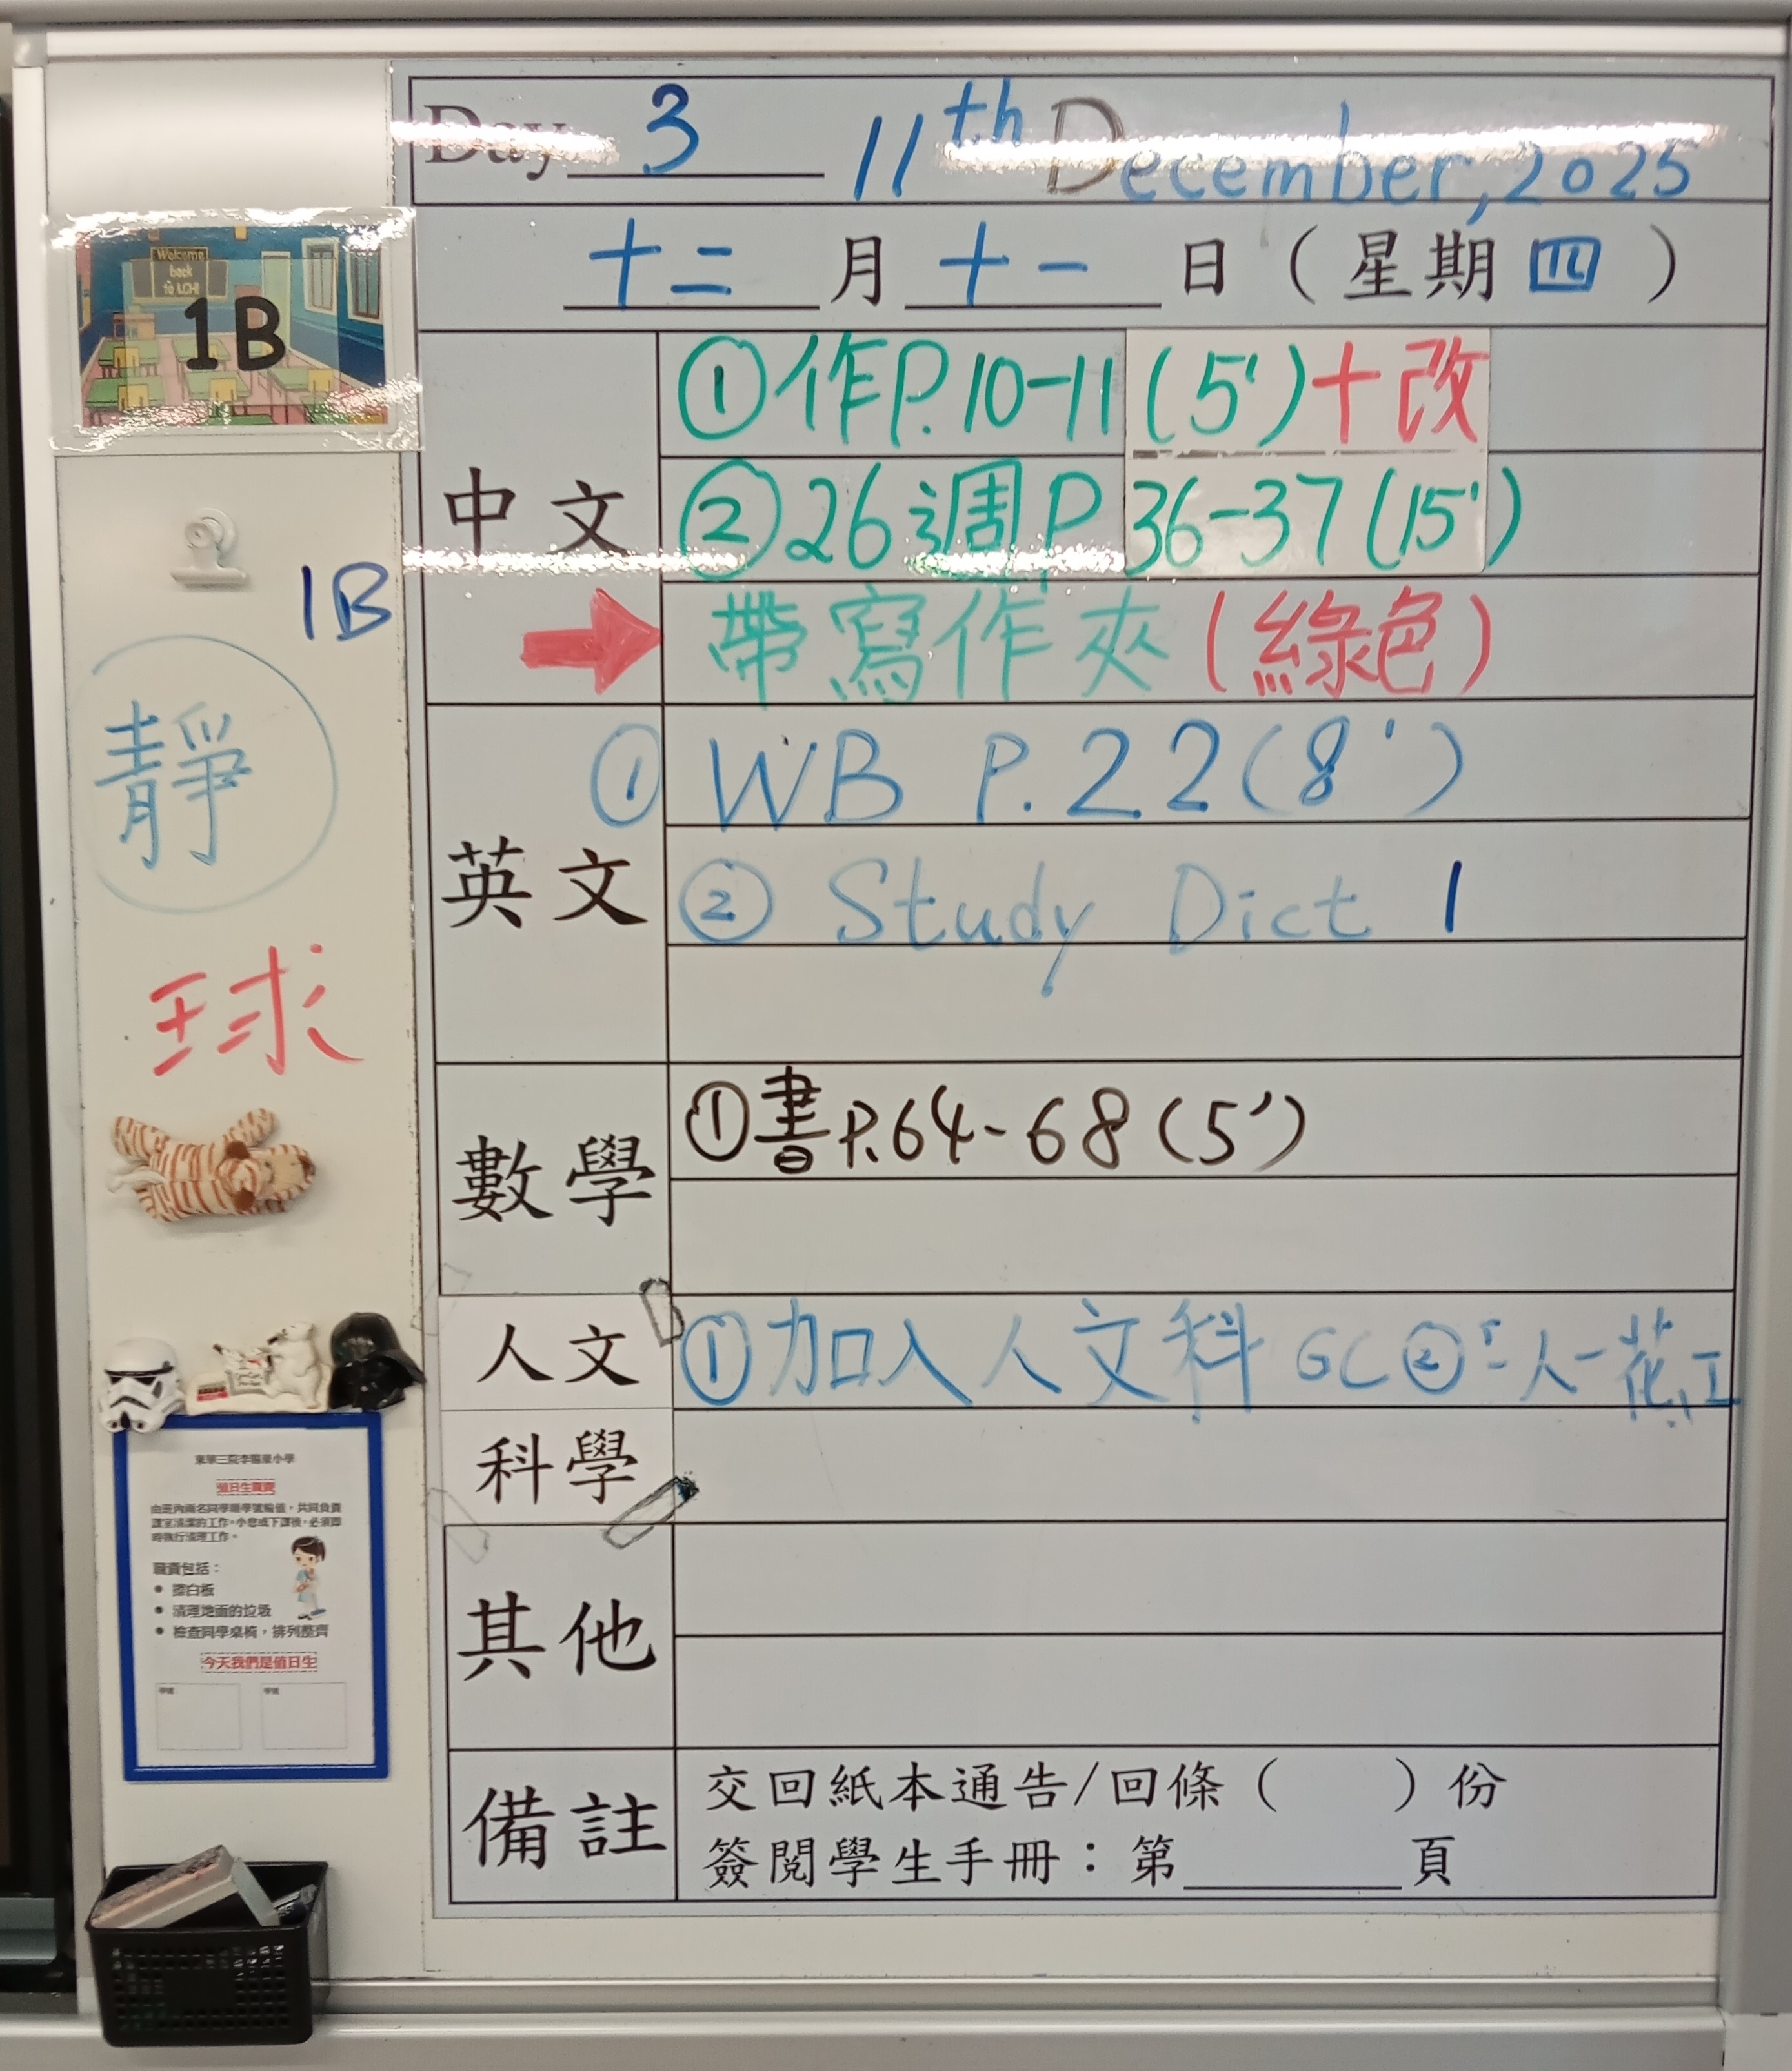 Day 3 11th December, 2025
十二月十一日（星期四）
Welcome
back
to LCH!
1B
中文
①作P.10-11(5')+改
②26週P 36-37(15')
帶寫作夾(綠色)
1B
靜
球
英文
① WB P.22(8')
② Study Dict 1
數學
①書P.64-68(5')
人文
①加入人文科 GC ② 一人一花
科學
其他
備註
交回紙本通告/回條（　　）份
簽閱學生手冊：第______頁
值日生職責
由班內兩名同學順學號輪值，共同負責
課室清潔的工作。小息或下課後，必須即
時執行清理工作。
職責包括：
• 擦白板
• 清理地面的垃圾
• 檢查同學桌椅，排列整齊
今天我們是值日生
學號
學號